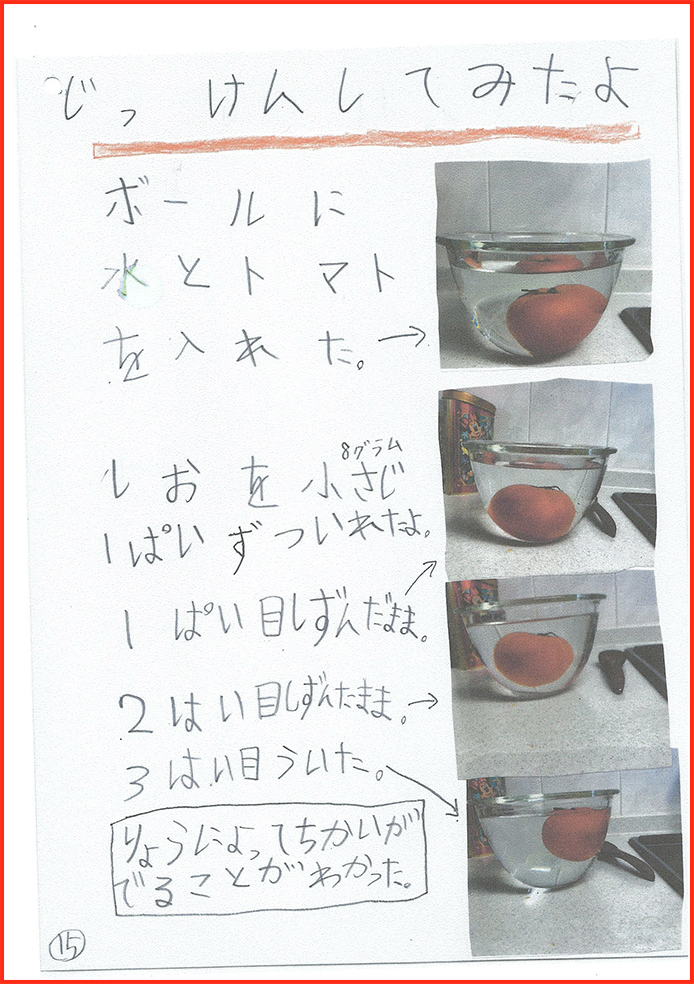 じっけんしてみたよ
ボールに
水とトマト
を入れた。→
8グラム
しおを小さじ
1ぱいずついれたよ。
1ぱい目しずんだまま。
2はい目しずんたまま。→
3ばい目ういた。
りょうによってちがいが
でることがわかった。
15